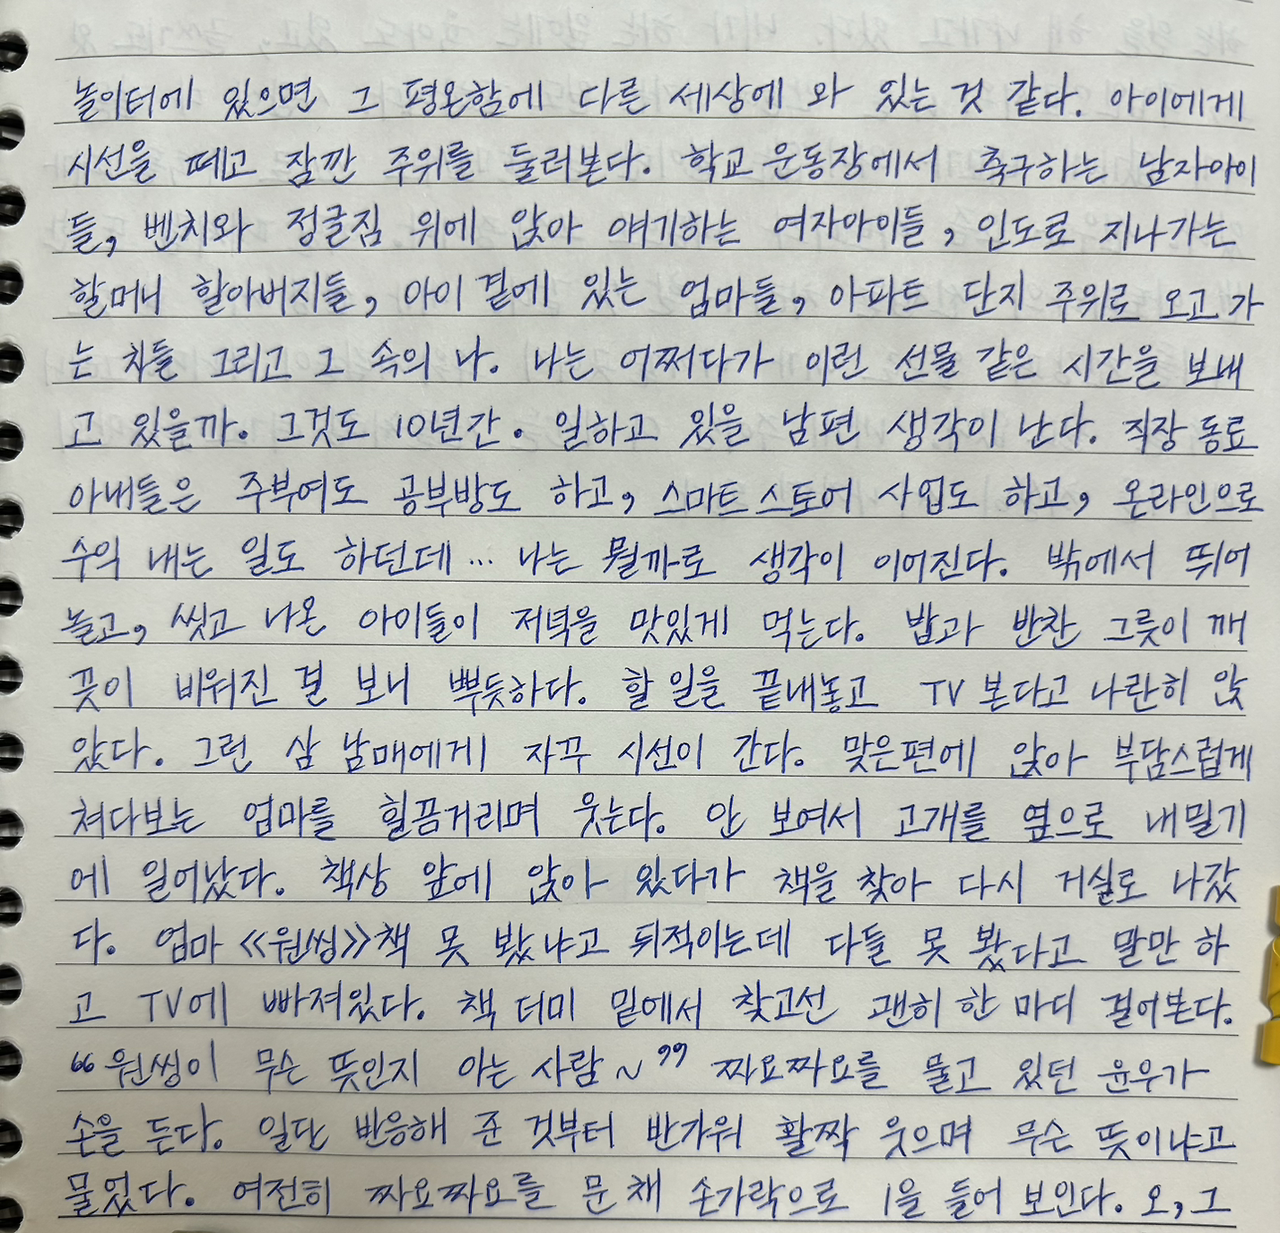 놀이터에 있으면 그 평온함에 다른 세상에 와 있는 것 같다. 아이에게
시선을 떼고 잠깐 주위를 둘러본다. 학교 운동장에서 축구하는 남자아이
들, 벤치와 정글짐 위에 앉아 얘기하는 여자아이들, 인도로 지나가는
할머니 할아버지들, 아이 곁에 있는 엄마들, 아파트 단지 주위로 오고 가
는 차들 그리고 그 속의 나. 나는 어쩌다가 이런 선물 같은 시간을 보내
고 있을까. 그것도 10년간. 일하고 있을 남편 생각이 난다. 직장 동료
아내들은 주부여도 공부방도 하고, 스마트스토어 사업도 하고, 온라인으로
수익 내는 일도 하던데… 나는 뭘까로 생각이 이어진다. 밖에서 뛰어
놀고, 씻고 나온 아이들이 저녁을 맛있게 먹는다. 밥과 반찬 그릇이 깨
끗이 비워진 걸 보니 뿌듯하다. 할 일을 끝내놓고 TV 본다고 나란히 앉
았다. 그런 삼 남매에게 자꾸 시선이 간다. 맞은편에 앉아 부담스럽게
쳐다보는 엄마를 힐끔거리며 웃는다. 안 보여서 고개를 옆으로 내밀기
에 일어났다. 책상 앞에 앉아 있다가 책을 찾아 다시 거실로 나갔
다. 엄마 《원씽》책 못 봤냐고 뒤적이는데 다들 못 봤다고 말만 하
고 TV에 빠져있다. 책 더미 밑에서 찾고선 괜히 한 마디 걸어본다.
“원씽이 무슨 뜻인지 아는 사람~” 짜요짜요를 물고 있던 윤우가
손을 든다. 일단 반응해 준 것부터 반가워 활짝 웃으며 무슨 뜻이냐고
물었다. 여전히 짜요짜요를 문 채 손가락으로 1을 들어 보인다. 오, 그